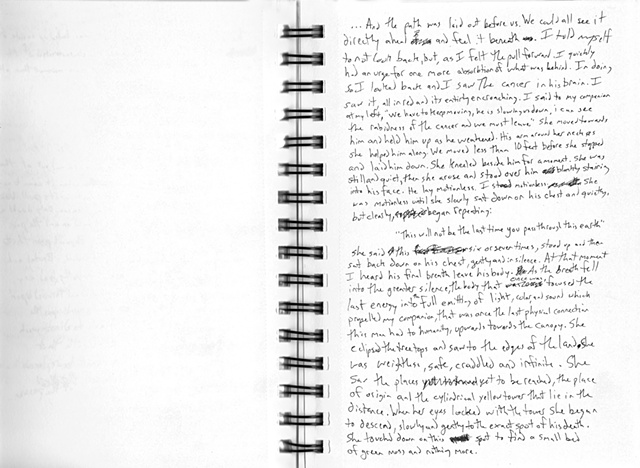 ... And the path was laid out before us. We could all see it
directly ahead and feel it beneath us. I told myself
to not look back, but, as I felt the pull forward I quickly
had an urge for one more absorbtion of what was behind. In doing
so I looked back and I saw The cancer in his brain. I
saw it, all in red and its entirity encroaching. I said to my companion
at my left, "We have to keep moving, he is slowing us down, I can see
the rabidness of the cancer and we must leave." She moved towards
him and held him up as he weakened. His arm around her neck as
she helped him along. We moved less than 10 feet before she stopped
and laid him down. She kneeled beside him for a moment. She was
still and quiet, then she arose and stood over him blankly staring
into his face. He lay motionless. I stood motionless She
was motionless until she slowly sat down on his chest and quietly,
but clearly, began repeating:
"This will not be the last time you pass through this earth"
She said this six or seven times, stood up and then
sat back down on his chest, gently and in silence. At that moment
I heard his final breath leave his body. As the breath fell
into the greater silence, the body that once was focused the
last energy into the full emitting of light, color, and sound which
propelled my companion, that was once the last physical connection
this man had to humanity, upwards towards the canopy. She
eclipsed the tree tops and saw to the edges of the land. She
was weightless, safe, craddled and infinite. She
saw the places yet to be reached, the place
of origin and the cylindrical yellow tower that lie in the
distance. When her eyes locked with the tower She began
to descend, slowly and gently to the exact spot of his death.
She touched down on this spot to find a small bed
of green moss and nothing more.